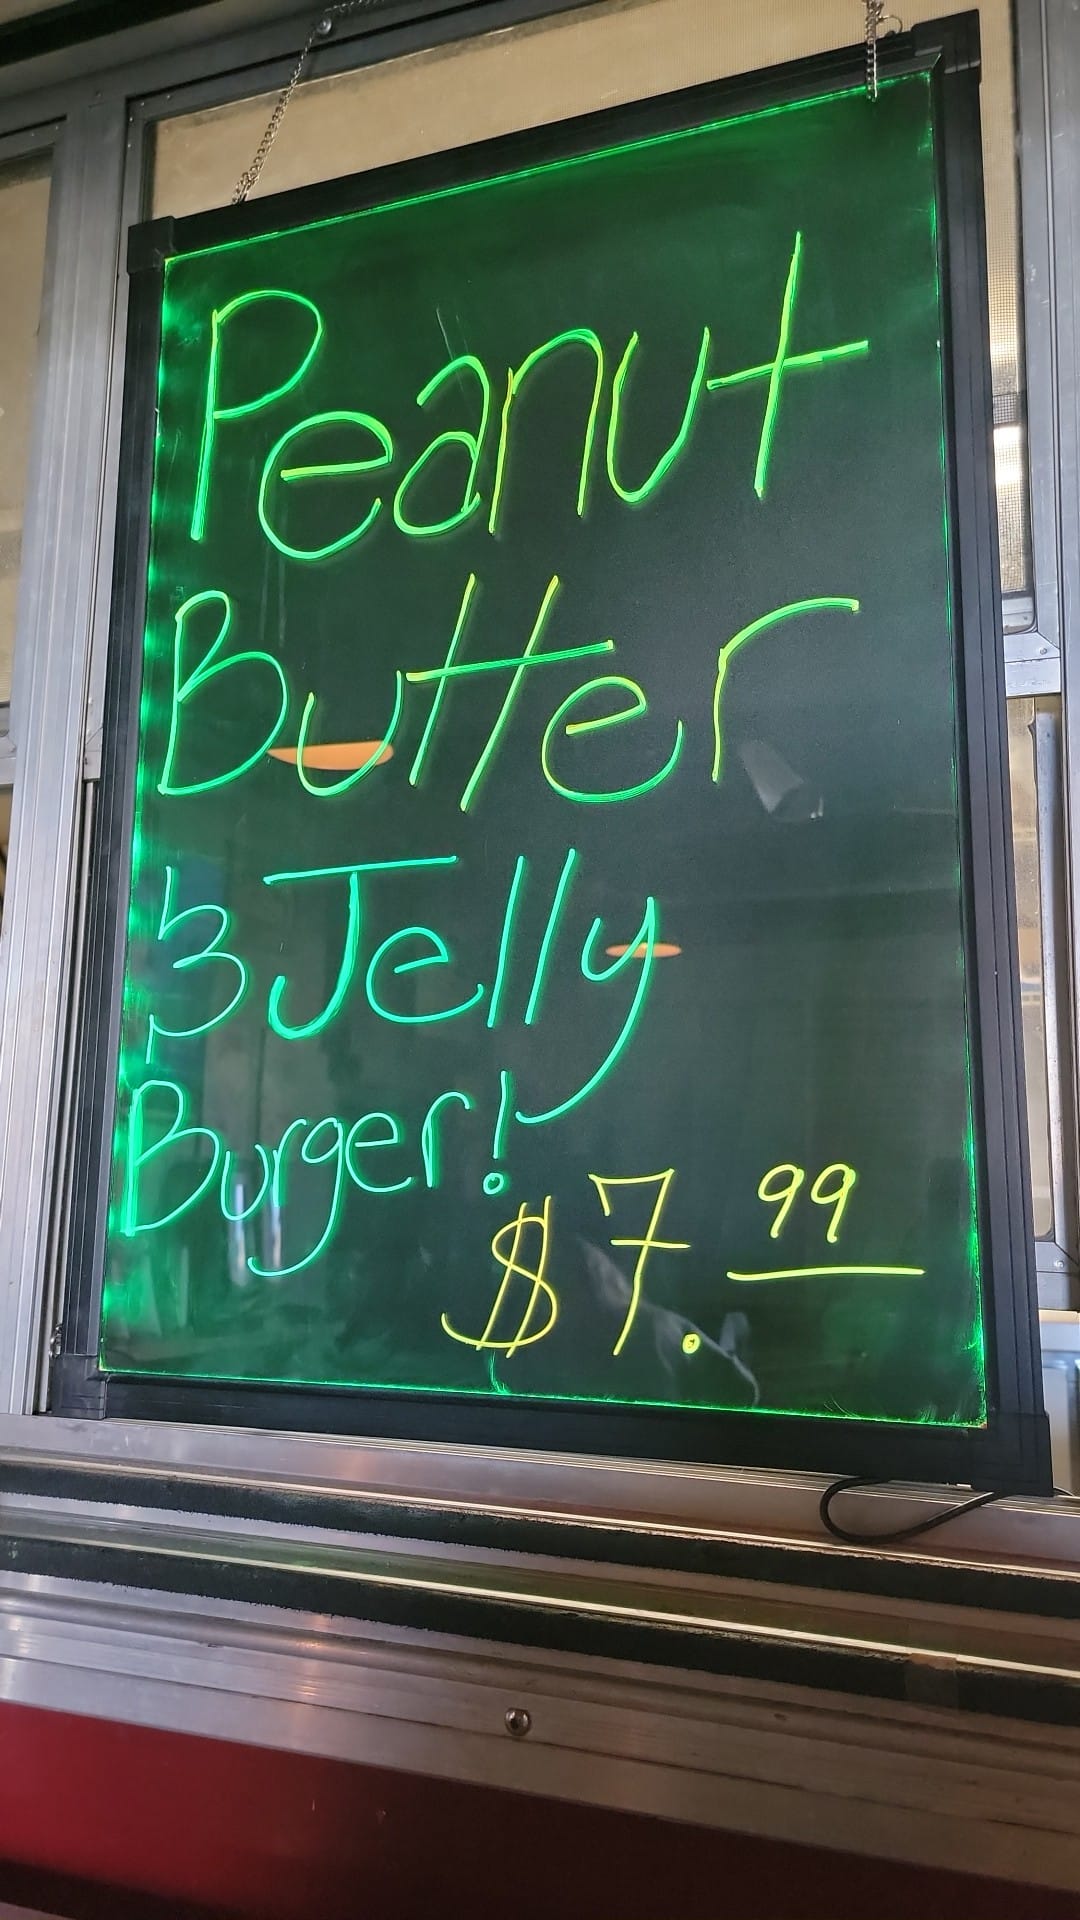 Peanut
Butter
& Jelly
Burger!
$7.99